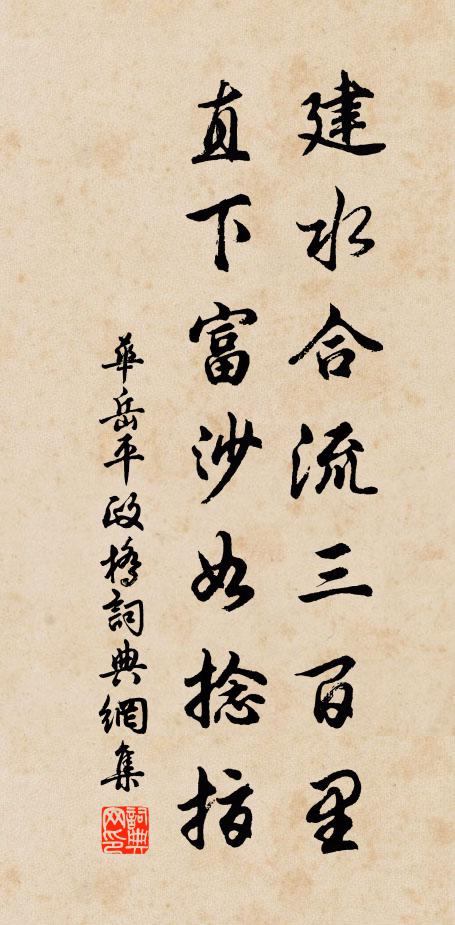 建水合流三百里
直下富沙如捻指
華岳平政橋詞典網集
詞典網印